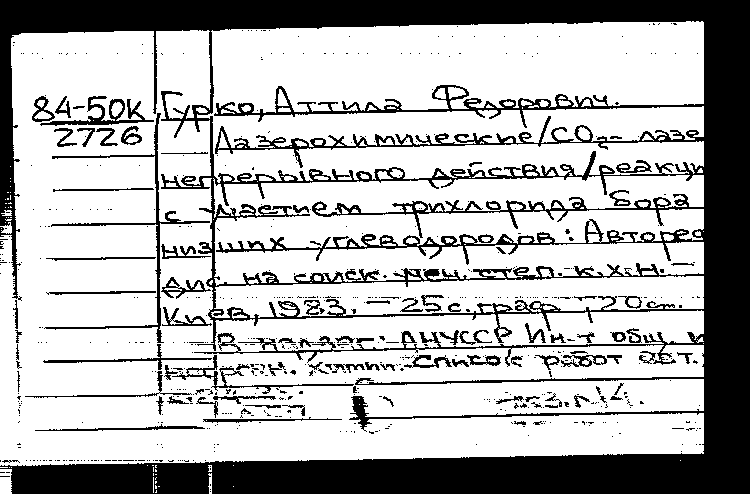 84-50К Гурко, Аттила Федорович.
2726 Лазерохимические/СО₂- лазе
непрерывного действия/реакци
с участием трихлорида бора
низших углеводородов: Авторе
дис. на соиск. учен. степ. к.х.н. -
Киев, 1983. - 25 с., граф ; 20 см.
В надзаг: АН УССР, Ин-т общ. и
неорган. химии. Список работ авт.: